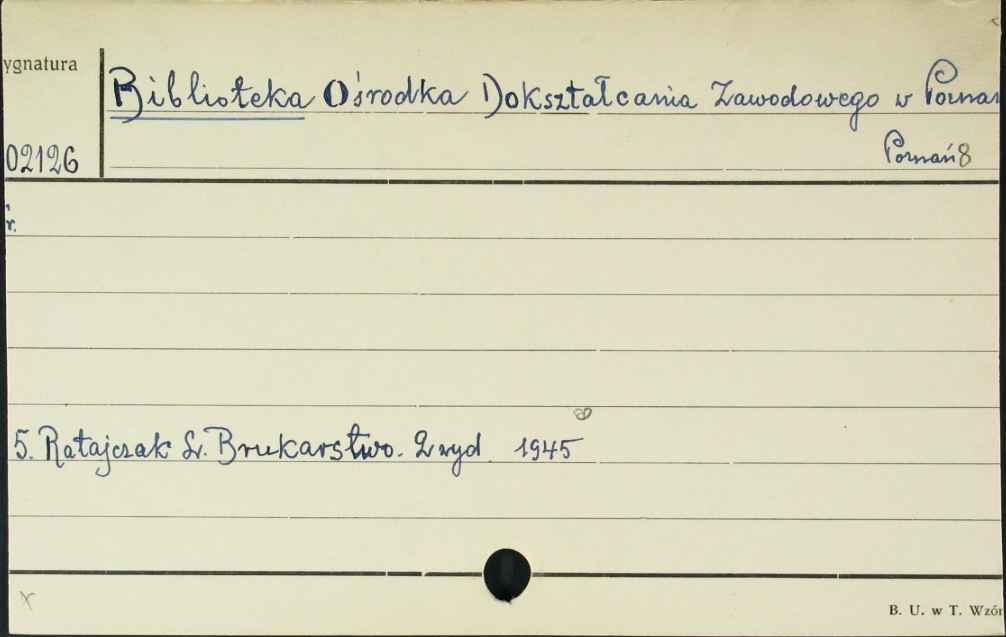 ygnatura
Biblioteka Ośrodka Dokształcania Zawodowego w Poznan
02126
Poznań 8
r.
5. Ratajczak Ł. Brukarstwo. 2 wyd. 1945
B. U. w T. Wzór